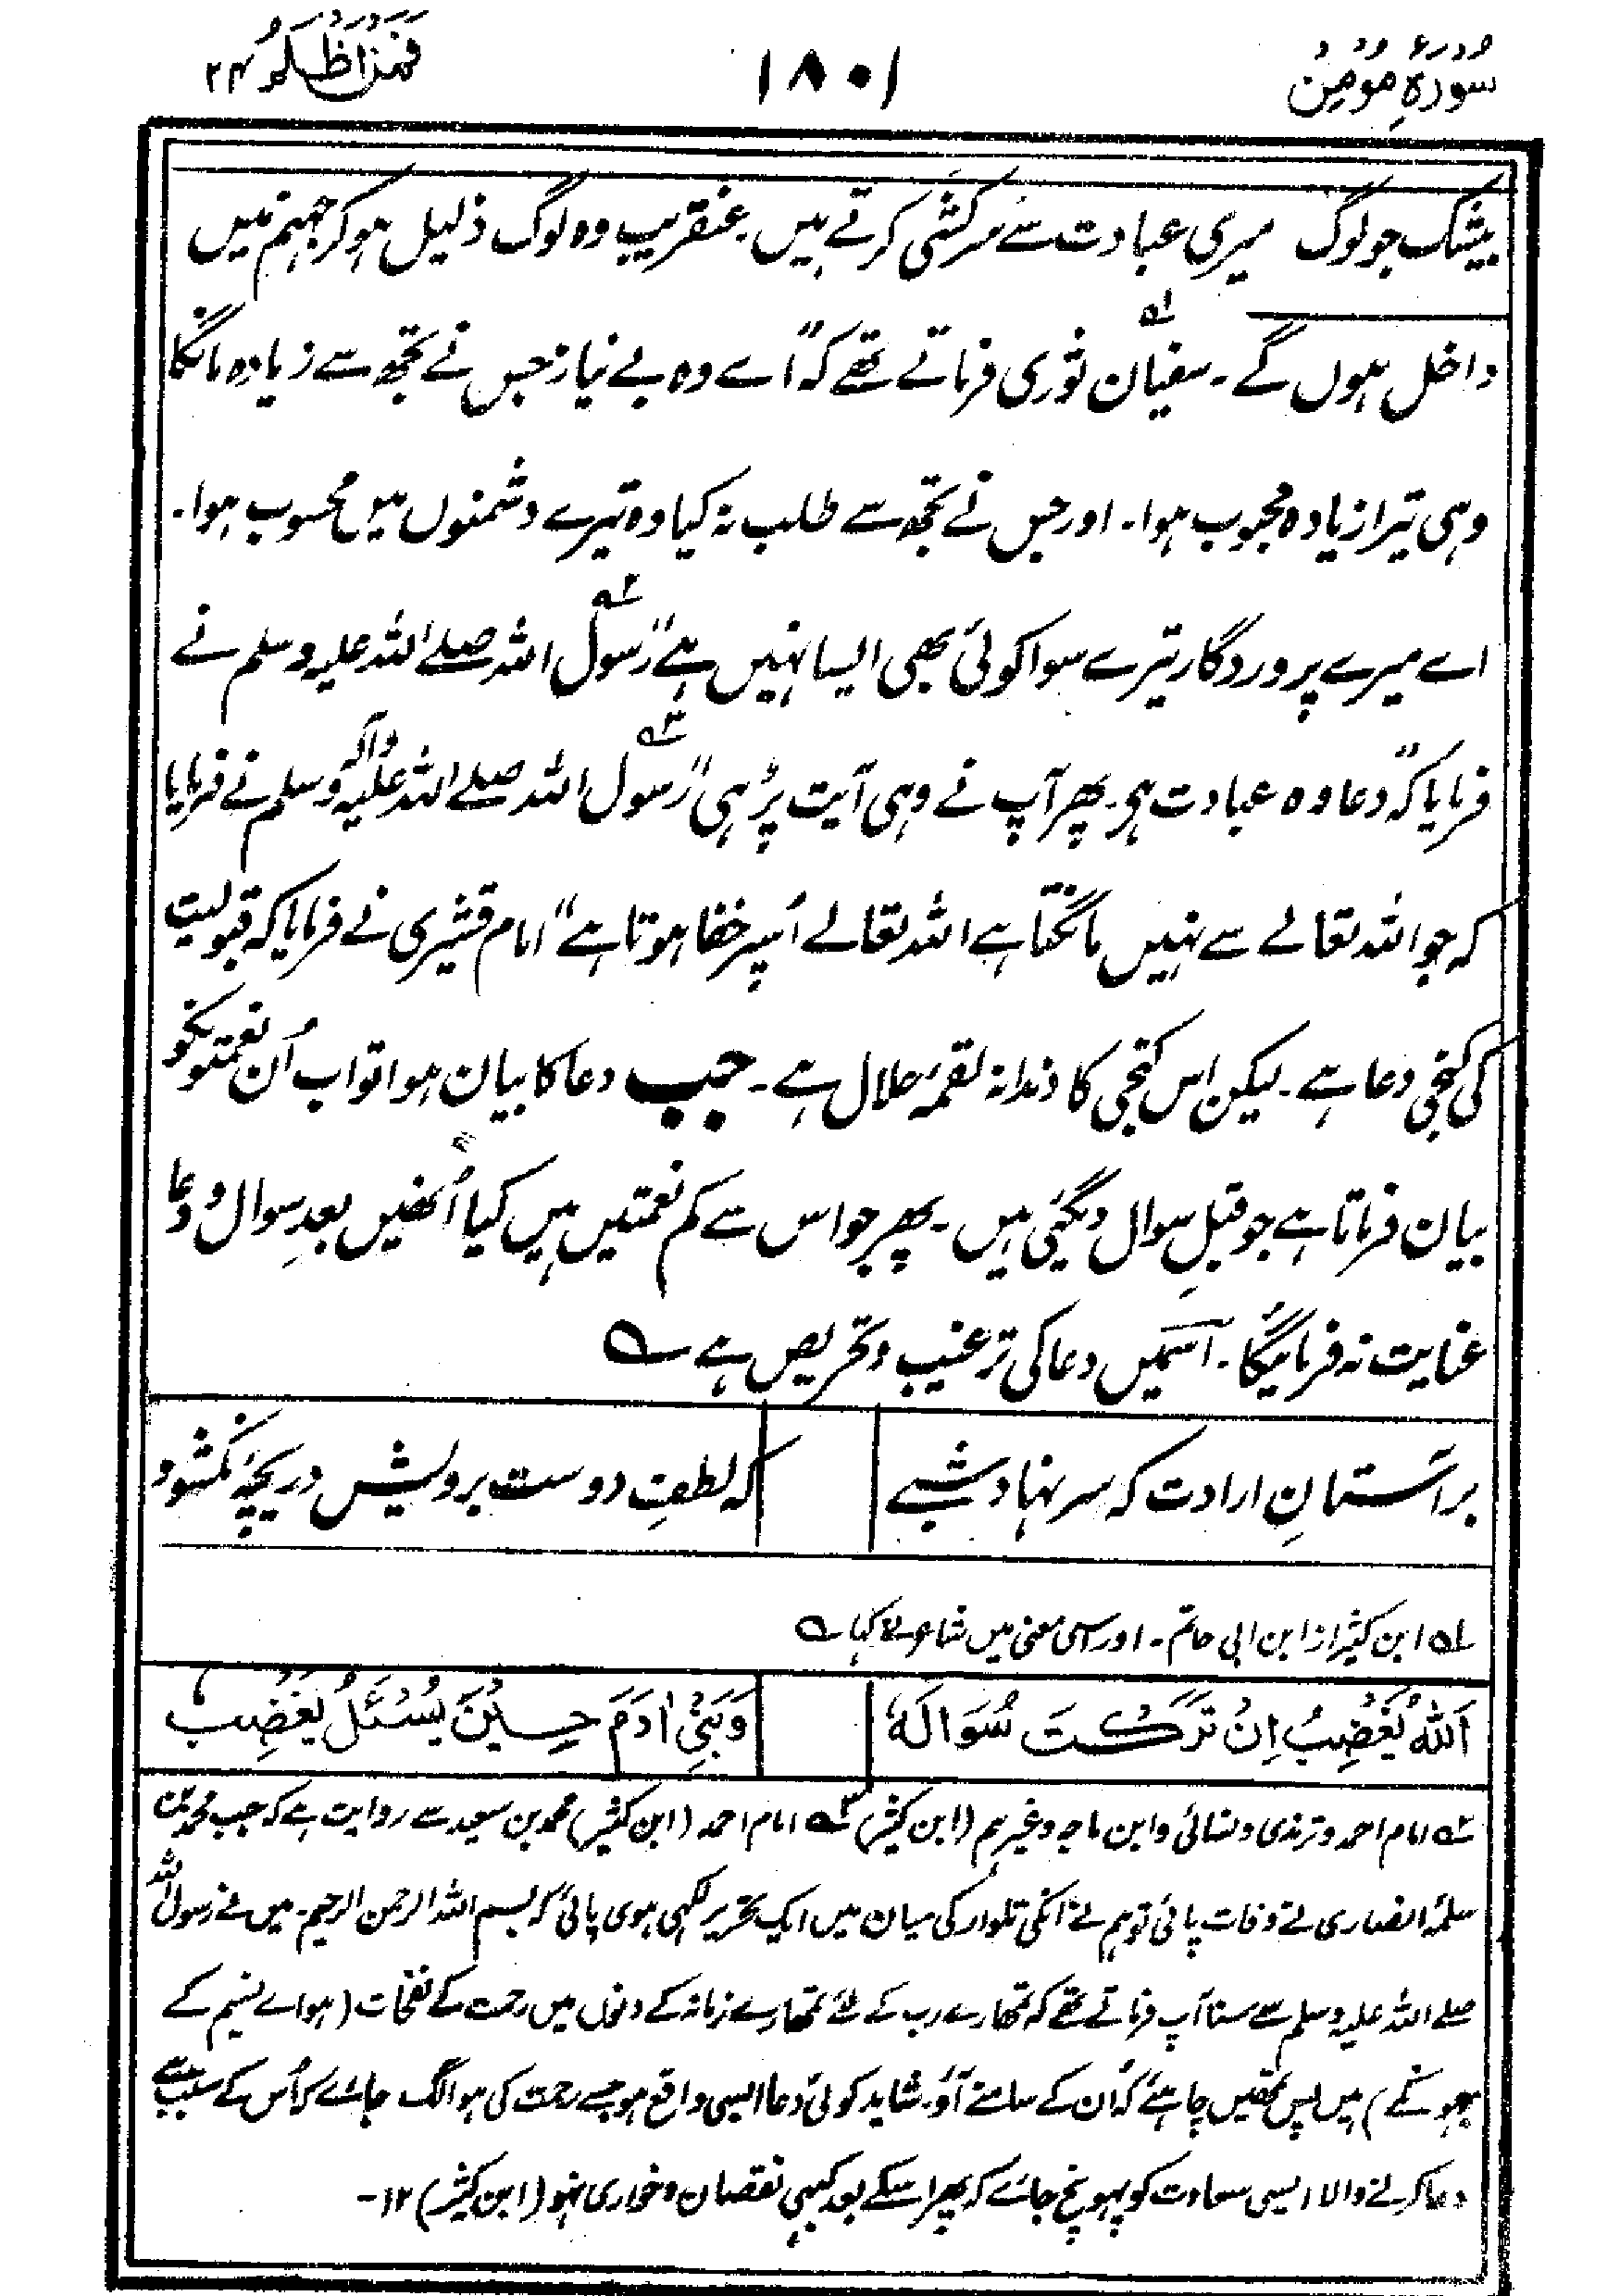 سُورَۃُ مُؤمِنُ ۱۸۰۱ فَمَنْ اَظْلَمُ ۲۴
بیشک جو لوگ میری عبادت سے سرکشی کرتے ہیں۔ عنقریب وہ لوگ ذلیل ہو کر جہنم میں
داخل ہوں گے۔ سفیان ثوری ۱؎ فرماتے تھے کہ ”اے وہ بے نیاز جس نے تجھ سے زیادہ مانگا
وہی تیرا زیادہ محبوب ہوا۔ اور جس نے تجھ سے طلب نہ کیا وہ تیرے دشمنوں میں محسوب ہوا۔
اے میرے پروردگار تیرے سوا کوئی بھی ایسا نہیں ہے“ رسول ۲؎ اللہ صلے اللہ علیہ وسلم نے
فرمایا کہ ”دعا وہ عبادت ہی۔ پھر آپ نے وہی آیت پڑہی“ رسول ۳؎ اللہ صلے اللہ علیہ وآلہ وسلم نے فرمایا
کہ جو اللہ تعالے سے نہیں مانگتا ہے اللہ تعالے اُسپر خفا ہوتا ہے“ امام قشیری نے فرمایا کہ قبولیت
کی کنجی دعا ہے۔ لیکن اس کنجی کا دندانہ لقمۂ حلال ہے۔ جب دعا کا بیان ہوا تو اب اُن نعمتونکو
بیان فرماتا ہے جو قبلِ سوال دیگئی ہیں۔ پھر جو اس سے کم نعمتیں ہیں کیا اُنھیں بعدِ سوال و دعا
عنایت نہ فرمائیگا۔ اسمیں دعا کی ترغیب و تحریص ہے ؎
بر آستانِ ارادت کہ سر نہاد شبے کہ لطفِ دوست برویش دریچۂ نکشود
۱؎ ابن کثیر از ابن ابی حاتم۔ اور اسی معنی میں شاعر نے کہا ؎
اَللّٰهُ يَغْضِبُ اِنْ تَرَكْتَ سُوَالَهٗ وَبَنِيْ اٰدَمَ حِيْنَ يُسْئَلُ يَغْضِبُ
۲؎ امام احمد و ترمذی و نسائی و ابن ماجہ وغیرہم (ابن کثیر) ۳؎ امام احمد (ابن کثیر) محمد بن سعید سے روایت ہے کہ جب محمد بن
سلمۂ انصاری نے وفات پائی تو ہم نے انکی تلوار کی میان میں ایک تحریر لکہی ہوی پائی کہ بسم اللہ الرحمن الرحیم۔ میں نے رسول اللہ
صلے اللہ علیہ وسلم سے سنا آپ فرماتے تھے کہ تمھارے رب کے لئے تمھارے زمانہ کے دنوں میں رحمت کے نفحات (ہوائے نسیم کے
جھونکے) ہیں پس تمھیں چاہئے کہ اُن کے سامنے آؤ۔ شاید کوئی دعا ایسی واقع ہو جسے رحمت کی ہوا لگ جائے کہ اُس کے سبب سے
دعا کرنے والا ایسی سعادت کو پہونچ جائے کہ پھر اسکے بعد کبہی نقصان و خواری نہو (ابن کثیر) ۱۲۔